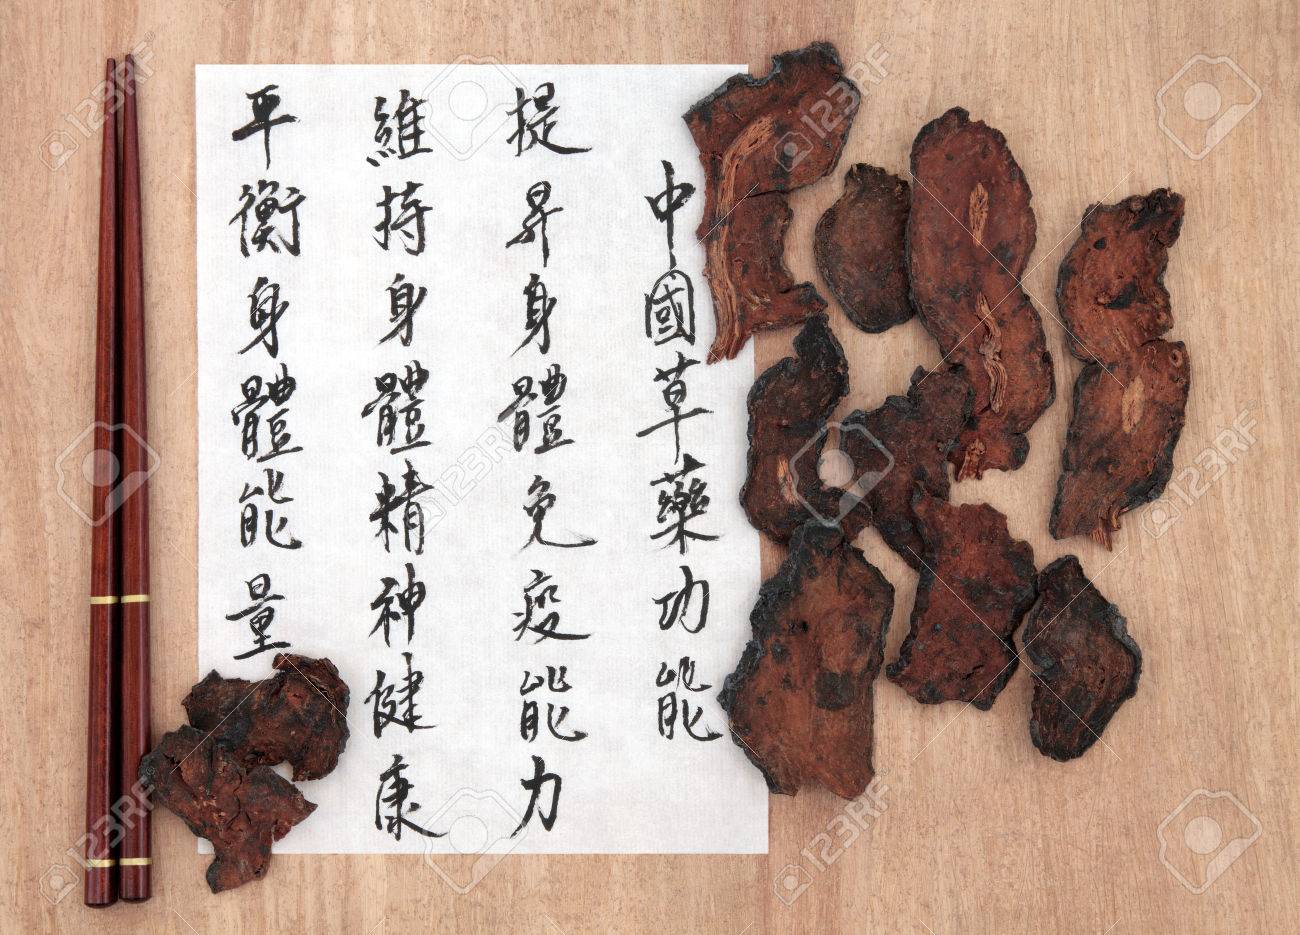 中國草藥功能
提昇身體免疫能力
維持身體精神健康
平衡身體能量
123RF
123RF
123RF
123RF
123RF
123RF
123RF
123RF
123RF
123RF
123RF
123RF